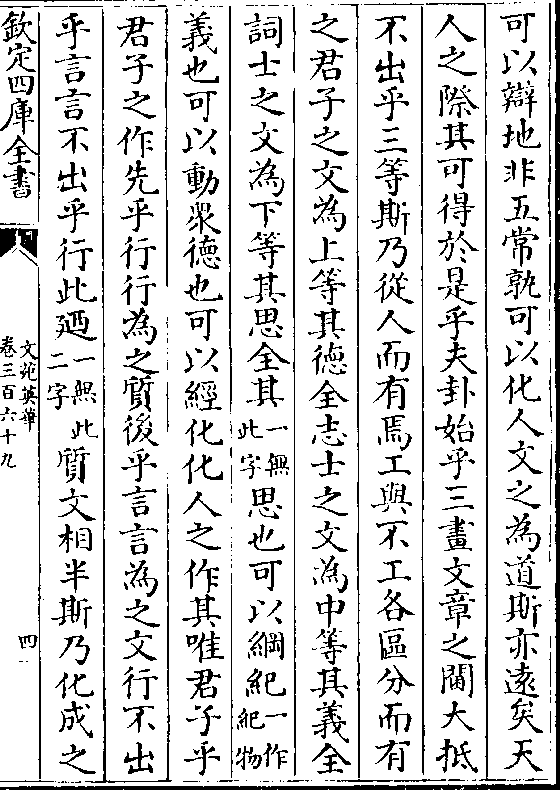 可以辯地非五常孰可以化人文之為道斯亦遠矣天
人之際其可得於是乎夫卦始乎三畫文章之閫大抵
不出乎三等斯乃從人而有焉工與不工各區分而有
之君子之文為上等其德全志士之文為中等其義全
詞士之文為下等其思全其一無此字思也可以綱紀一作紀物
義也可以動衆德也可以經化化人之作其唯君子乎
君子之作先乎行行為之質後乎言言為之文行不出
乎言言不出乎行此廼一無此二字質文相半斯乃化成之
欽定四庫全書
文苑英華
卷三百六十九
四